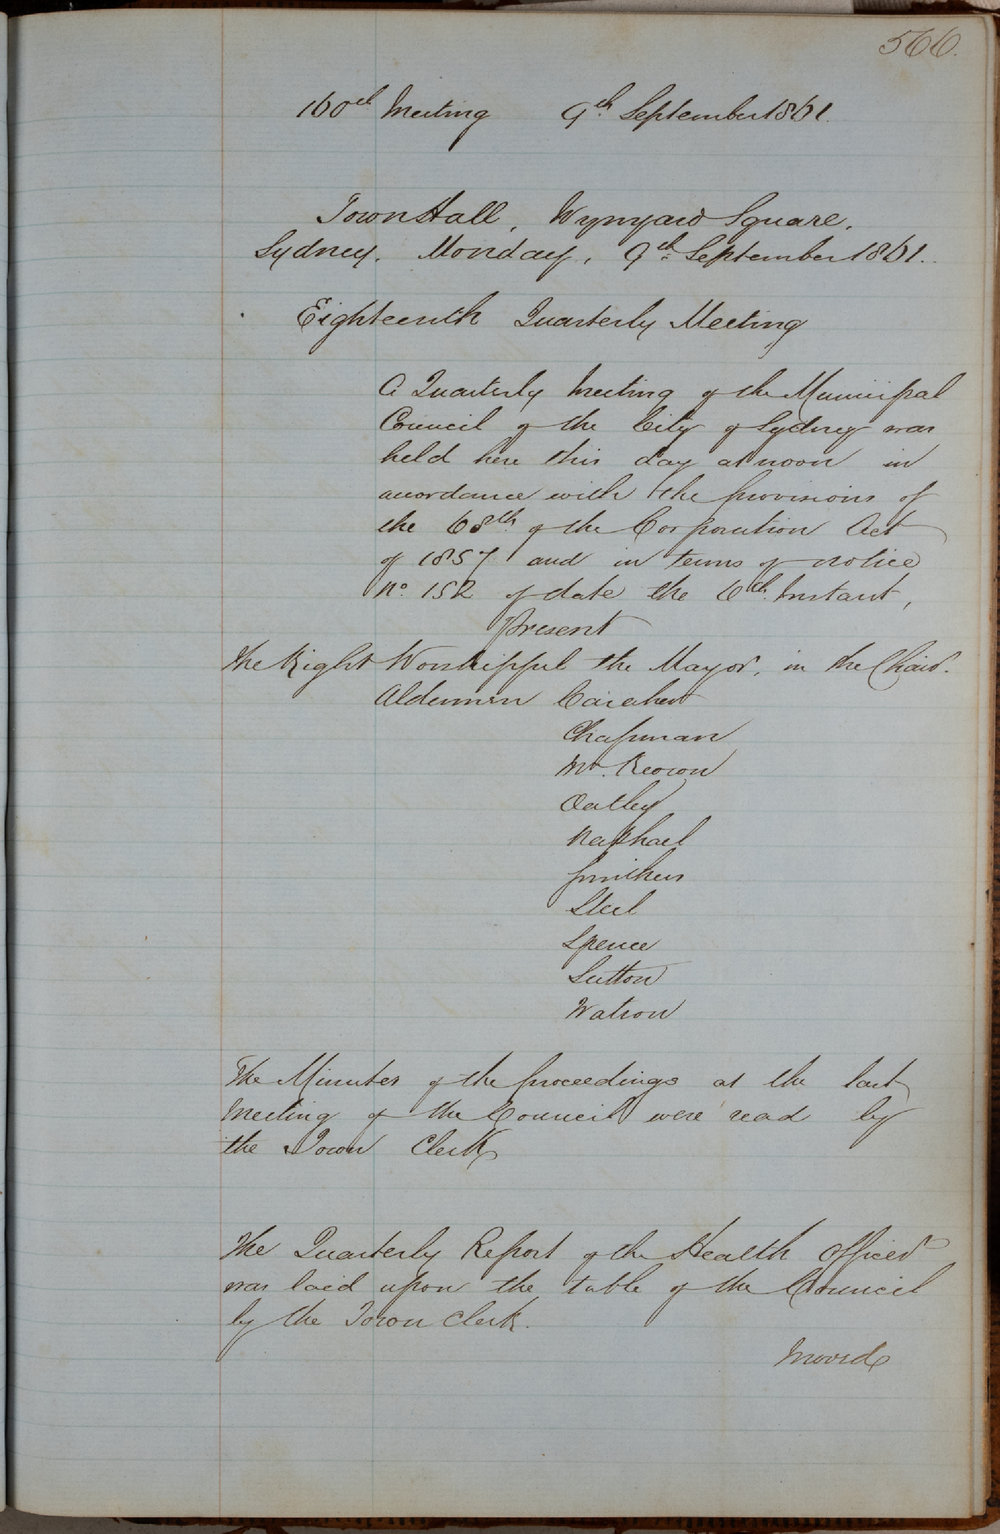 566.
160th Meeting 9th September 1861.
Town Hall, Wynyard Square,
Sydney, Monday, 9th September 1861.
Eighteenth Quarterly Meeting
A Quarterly Meeting of the Municipal
Council of the City of Sydney was
held here this day at noon in
accordance with the provisions of
the 68th of the Corporation Act
of 1857 and in terms of notice
No. 152 of date the 6th Instant,
Present
The Right Worshipful the Mayor, in the Chair.
Aldermen Caraher
Chapman
Mc.Keown
Oatley
Raphael
Smithers
Steel
Spence
Sutton
Watson
The Minutes of the proceedings at the last
Meeting of the Council were read by
the Town Clerk
The Quarterly Report of the Health Officer
was laid upon the table of the Council
by the Town Clerk.
Moved